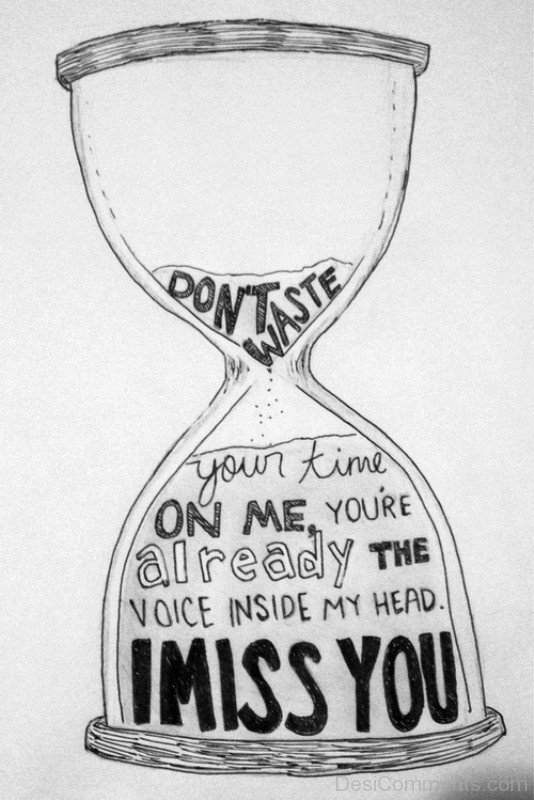 DON'T WASTE
your time
ON ME, YOU'RE
already THE
VOICE INSIDE MY HEAD.
I MISS YOU
DesiComments.com